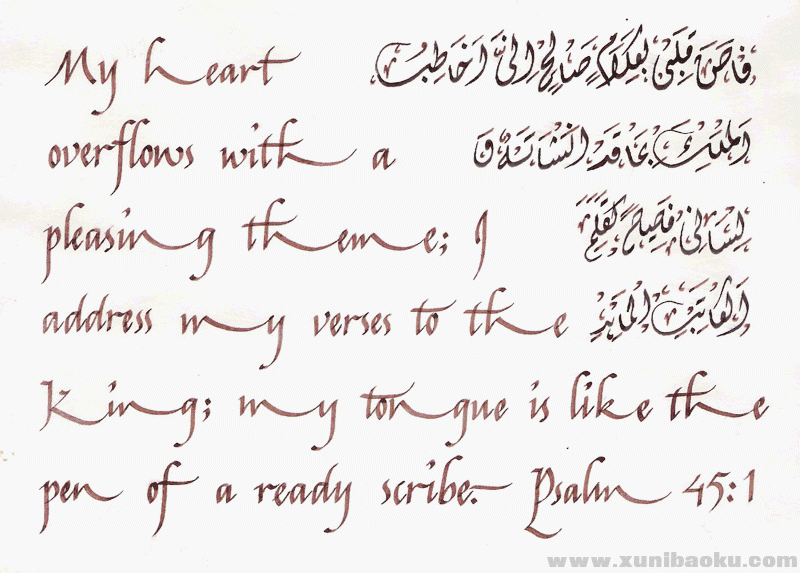 My heart
overflows with a
pleasing theme; I
address my verses to the
King; my tongue is like the
pen of a ready scribe. Psalm 45:1
فاض قلبي بكلام صالح اني اخاطب
الملك بما قد انشاته و
لساني فصيح كقلم
الكاتب
www.xunibaoku.com